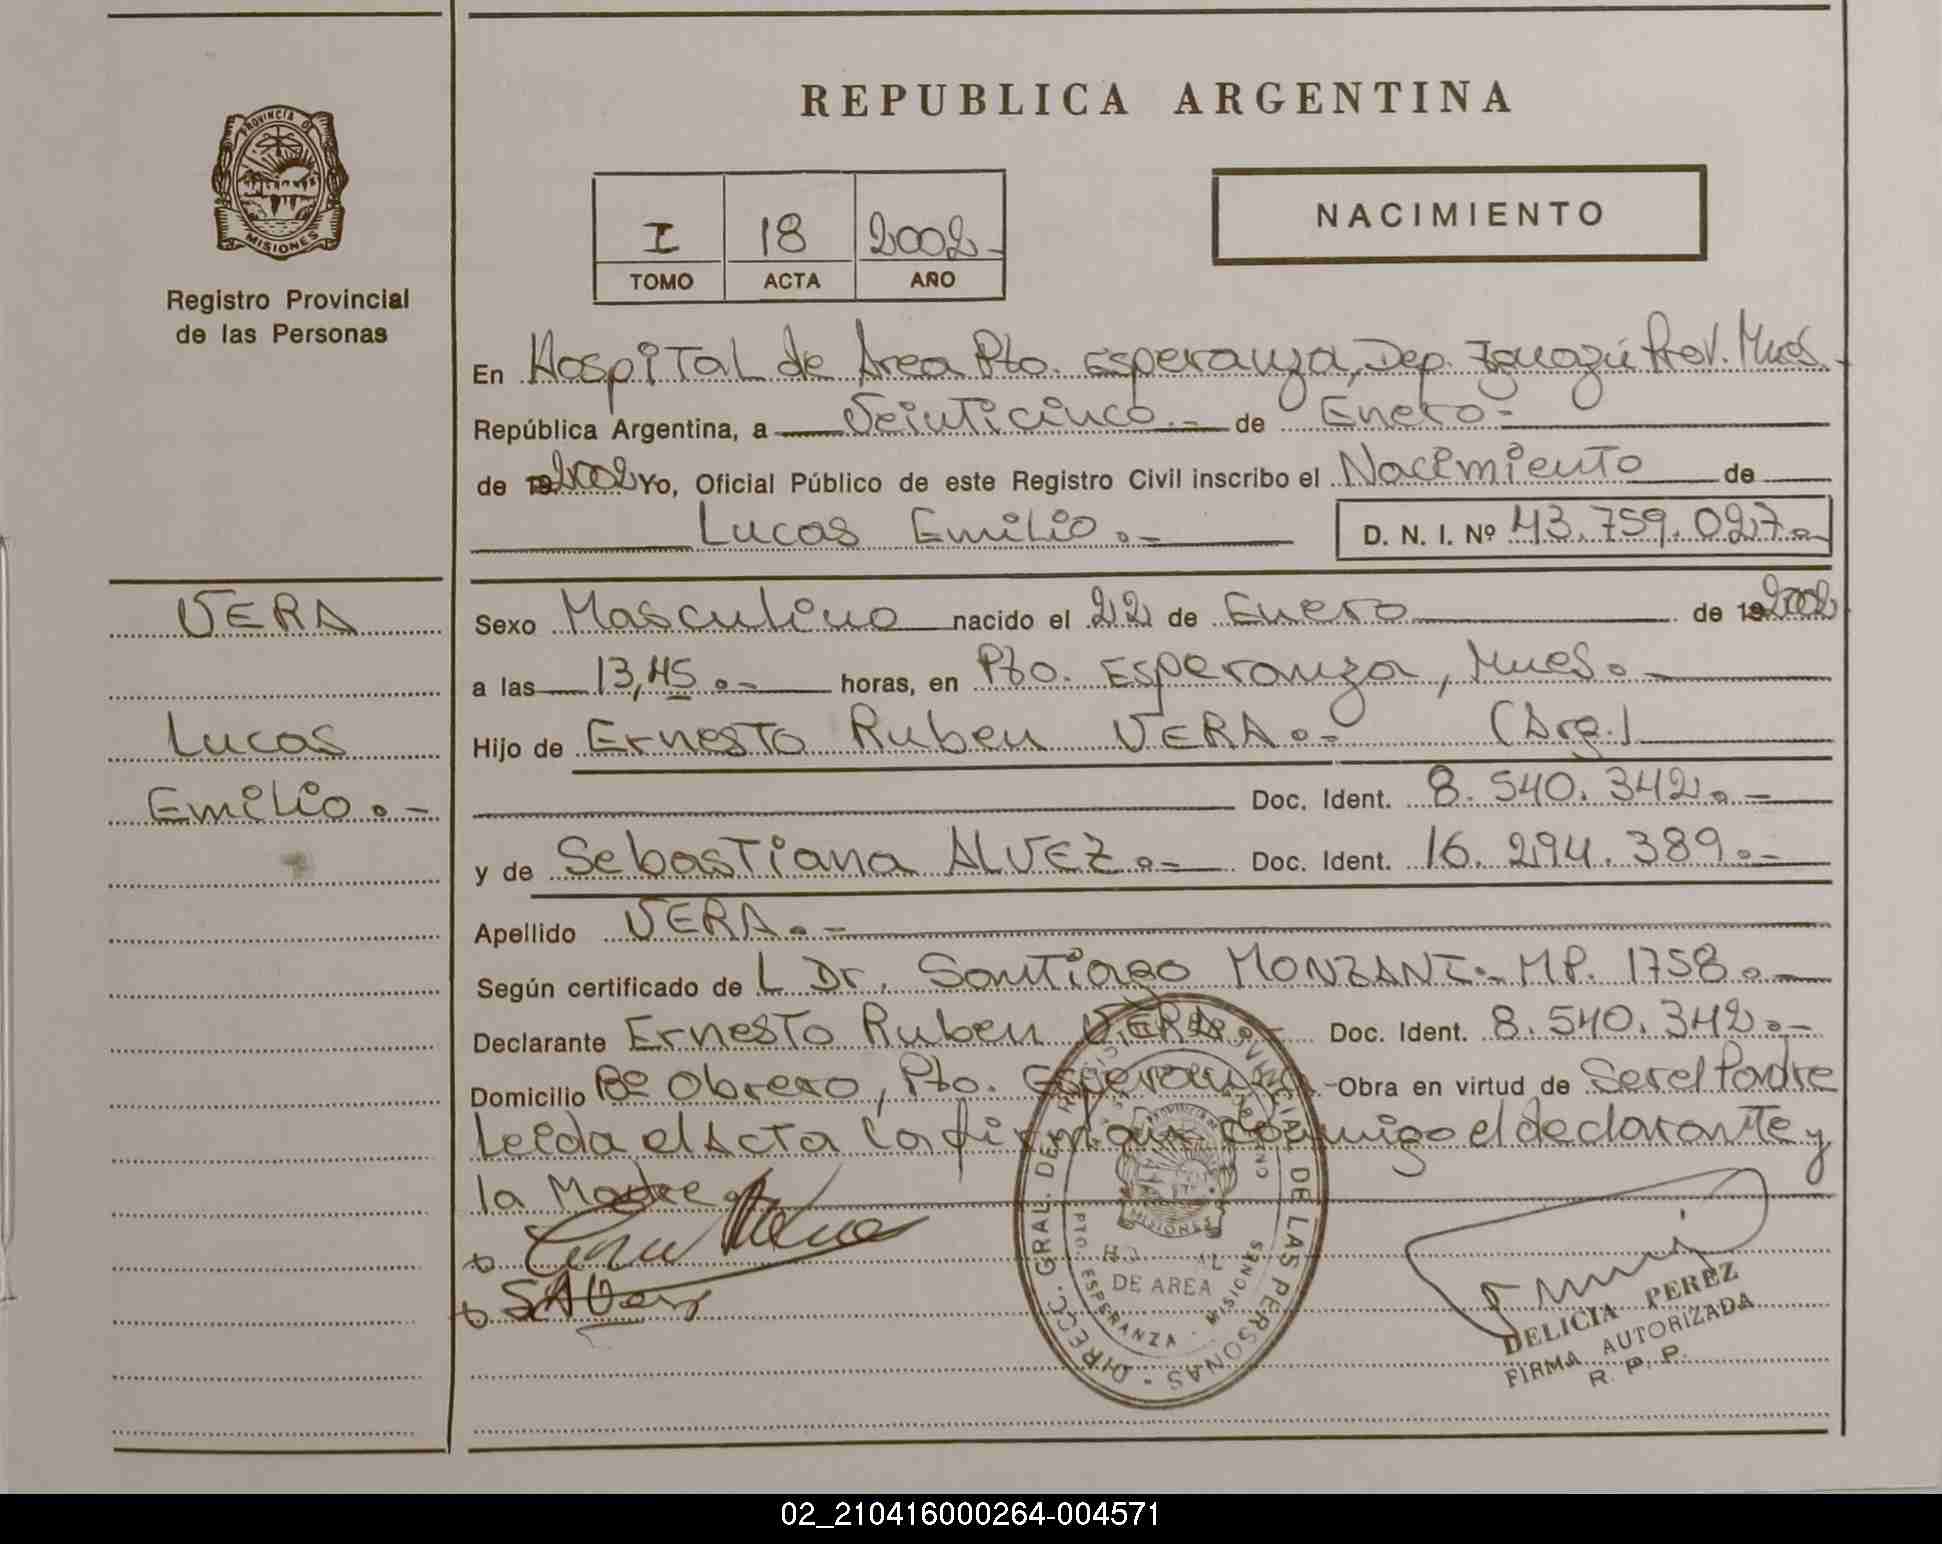 REPUBLICA ARGENTINA
PROVINCIA DE
MISIONES
Registro Provincial
de las Personas
I 18 2002-
TOMO ACTA AÑO
NACIMIENTO
En Hospital de Area Pto. Esperanza, Dep. Iguazú Prov. Mnes.-
República Argentina, a Veinticinco.- de Enero-
de 192002 Yo, Oficial Público de este Registro Civil inscribo el Nacimiento de
Lucas Emilio.- D. N. I. Nº 43.759.027.-
VERA
Lucas
Emilio.-
Sexo Masculino nacido el 22 de Enero de 192002
a las 13,45.- horas, en Pto. Esperanza, Mnes.-
Hijo de Ernesto Ruben VERA.- (Arg.)
Doc. Ident. 8.540.342.-
y de Sebastiana ALVEZ.- Doc. Ident. 16.294.389.-
Apellido VERA.-
Según certificado de L Dr. Santiago MONZANI.- M.P. 1758.-
Declarante Ernesto Ruben VERA.- Doc. Ident. 8.540.342.-
Domicilio Bº Obrero, Pto. Esperanza.- Obra en virtud de Ser el Padre
Leida el Acta la firman conmigo el declarante y
la Madre.-
DIRECC. GRAL. DEL REGISTRO PROVINCIAL DE LAS PERSONAS
PROVINCIA DE
MISIONES
DE AREA
PTO. ESPERANZA - MISIONES
DELICIA PEREZ
FIRMA AUTORIZADA
R. P. P.
02_210416000264-004571